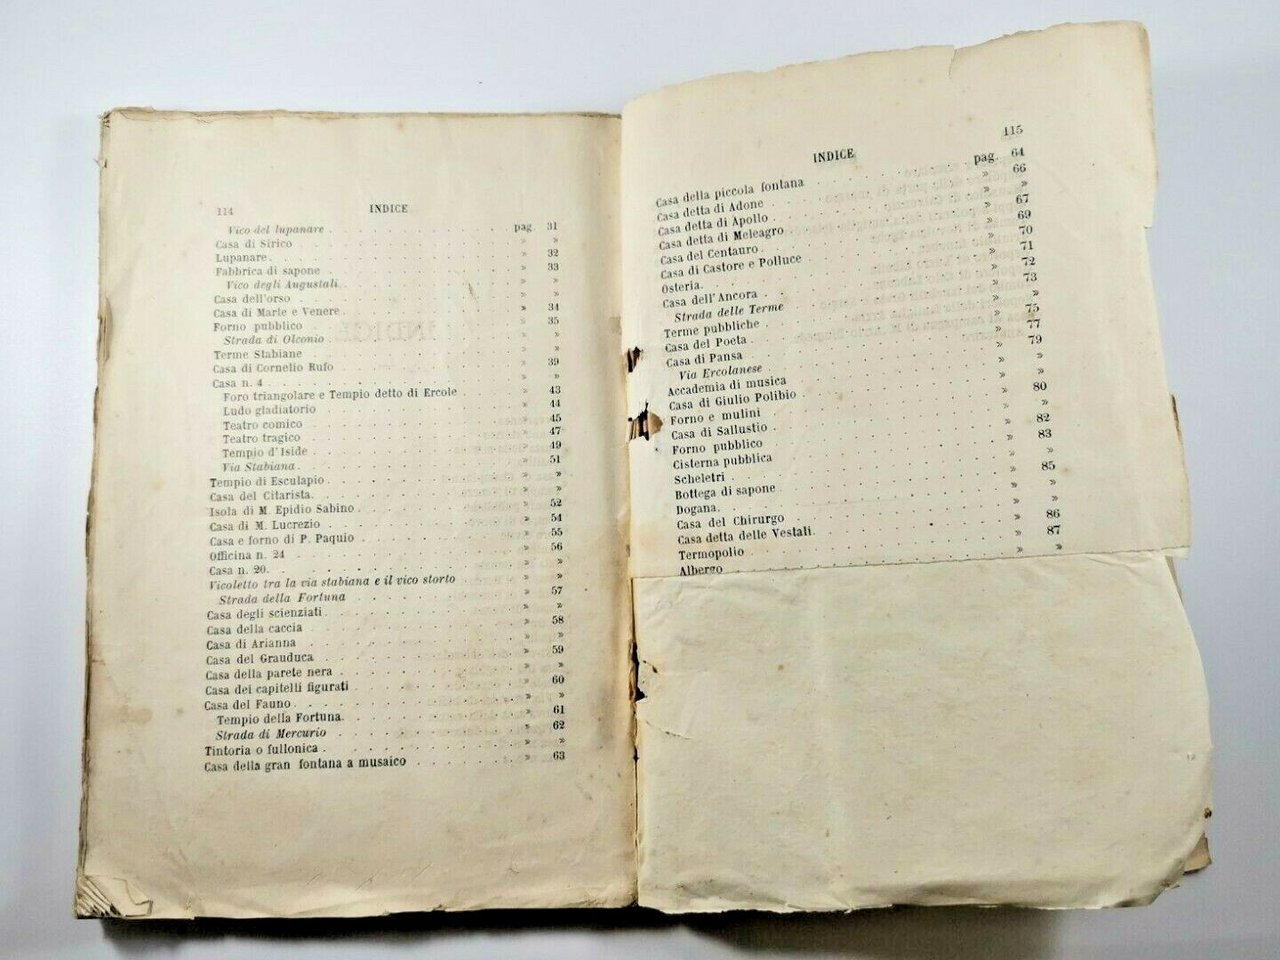 114
INDICE
Vico del lupanare pag. 31
Casa di Sirico » »
Lupanare » 32
Fabbrica di sapone » 33
Vico degli Augustali » »
Casa dell'orso » »
Casa di Marte e Venere » 34
Forno pubblico » 35
Strada di Olconio » »
Terme Stabiane » »
Casa di Cornelio Rufo » 39
Casa n. 4 » »
Foro triangolare e Tempio detto di Ercole » 43
Ludo gladiatorio » 44
Teatro comico » 45
Teatro tragico » 47
Tempio d'Iside » 49
Via Stabiana » 51
Tempio di Esculapio » »
Casa del Citarista » »
Isola di M. Epidio Sabino » 52
Casa di M. Lucrezio » 54
Casa e forno di P. Paquio » 55
Officina n. 24 » 56
Casa n. 20 » »
Vicoletto tra la via stabiana e il vico storto » »
Strada della Fortuna » 57
Casa degli scienziati » »
Casa della caccia » 58
Casa di Arianna » »
Casa del Grauduca » 59
Casa della parete nera » »
Casa dei capitelli figurati » 60
Casa del Fauno » »
Tempio della Fortuna » 61
Strada di Mercurio » 62
Tintoria o fullonica » »
Casa della gran fontana a musaico » 63
115
INDICE
Casa della piccola fontana pag. 64
Casa detta di Adone » 66
Casa detta di Apollo » »
Casa detta di Meleagro » 67
Casa del Centauro » 69
Casa di Castore e Polluce » 70
Osteria » 71
Casa dell'Ancora » 72
Strada delle Terme » 73
Terme pubbliche » »
Casa del Poeta » 75
Casa di Pansa » 77
Via Ercolanese » 79
Accademia di musica » »
Casa di Giulio Polibio » »
Forno e mulini » 80
Casa di Sallustio » »
Forno pubblico » 82
Cisterna pubblica » 83
Scheletri » »
Bottega di sapone » 85
Dogana » »
Casa del Chirurgo » »
Casa detta delle Vestali » 86
Termopolio » 87
Albergo » »